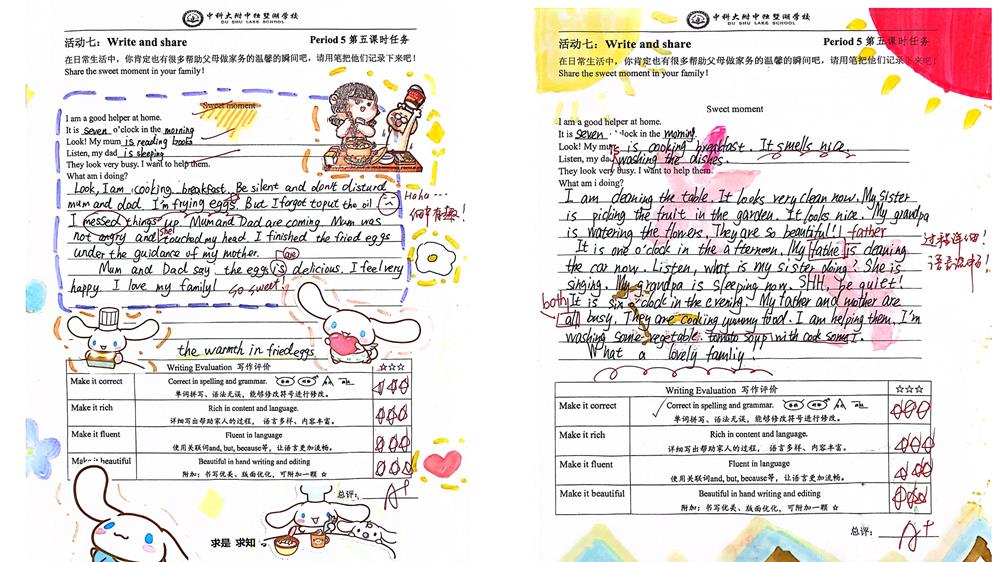 中科大附中独墅湖学校
DU SHU LAKE SCHOOL
活动七：Write and share Period 5 第五课时任务
在日常生活中，你肯定也有很多帮助父母做家务的温馨的瞬间吧，请用笔把他们记录下来吧！
Share the sweet moment in your family!
Sweet moment
I am a good helper at home.
It is seven o'clock in the morning
Look! My mum is reading books
Listen, my dad is sleeping
They look very busy. I want to help them.
What am i doing?
Look, I am cooking breakfast. Be silent and don't disturd
mum and dad. I'm frying eggs. But I forgot to put the oil
I messed things up. Mum and Dad are coming. Mum was
not angry and she touched my head. I finished the fried eggs
under the guidance of my mother.
Mum and Dad say the eggs is delicious. I feel very
are
happy. I love my family! So sweet
Haha
the warmth in fried eggs
Writing Evaluation 写作评价 ☆☆☆
Make it correct Correct in spelling and grammar.
单词拼写、语法无误，能够修改符号进行修改。
Make it rich Rich in content and language.
详细写出帮助家人的过程，语言多样、内容丰富。
Make it fluent Fluent in language
使用关联词and, but, because等，让语言更加流畅。
Make it beautiful Beautiful in hand writing and editing
附加：书写优美、版面优化，可附加一颗 ☆
总评： A+
求是 求知
中科大附中独墅湖学校
DU SHU LAKE SCHOOL
活动七：Write and share Period 5 第五课时任务
在日常生活中，你肯定也有很多帮助父母做家务的温馨的瞬间吧，请用笔把他们记录下来吧！
Share the sweet moment in your family!
Sweet moment
I am a good helper at home.
It is seven o'clock in the morning
Look! My mum is cooking breakfast. It smells nice.
Listen, my dad is washing the dishes.
They look very busy. I want to help them.
What am i doing?
I am cleaning the table. It looks very clean now. My sister
is picking the fruit in the garden. It looks nice. My grandpa
is watering the flowers. They are so beautiful! father
It is one o'clock in the afternoon. My fathe is cleaning
the car now. Listen, what is my sister doing? She is
singing. My grandpa is sleeping now. SHH, be quiet!
both
It is six o'clock in the evening. My father and mother are
all busy. They are cooking yummy food. I am helping them. I'm
washing some vegetable. tomato soup with cook some I.
What a lovely famliy!
过程详细！
Writing Evaluation 写作评价 ☆☆☆
Make it correct Correct in spelling and grammar.
单词拼写、语法无误，能够修改符号进行修改。
Make it rich Rich in content and language.
详细写出帮助家人的过程，语言多样、内容丰富。
Make it fluent Fluent in language
使用关联词and, but, because等，让语言更加流畅。
Make it beautiful Beautiful in hand writing and editing
附加：书写优美、版面优化，可附加一颗 ☆
总评： A+